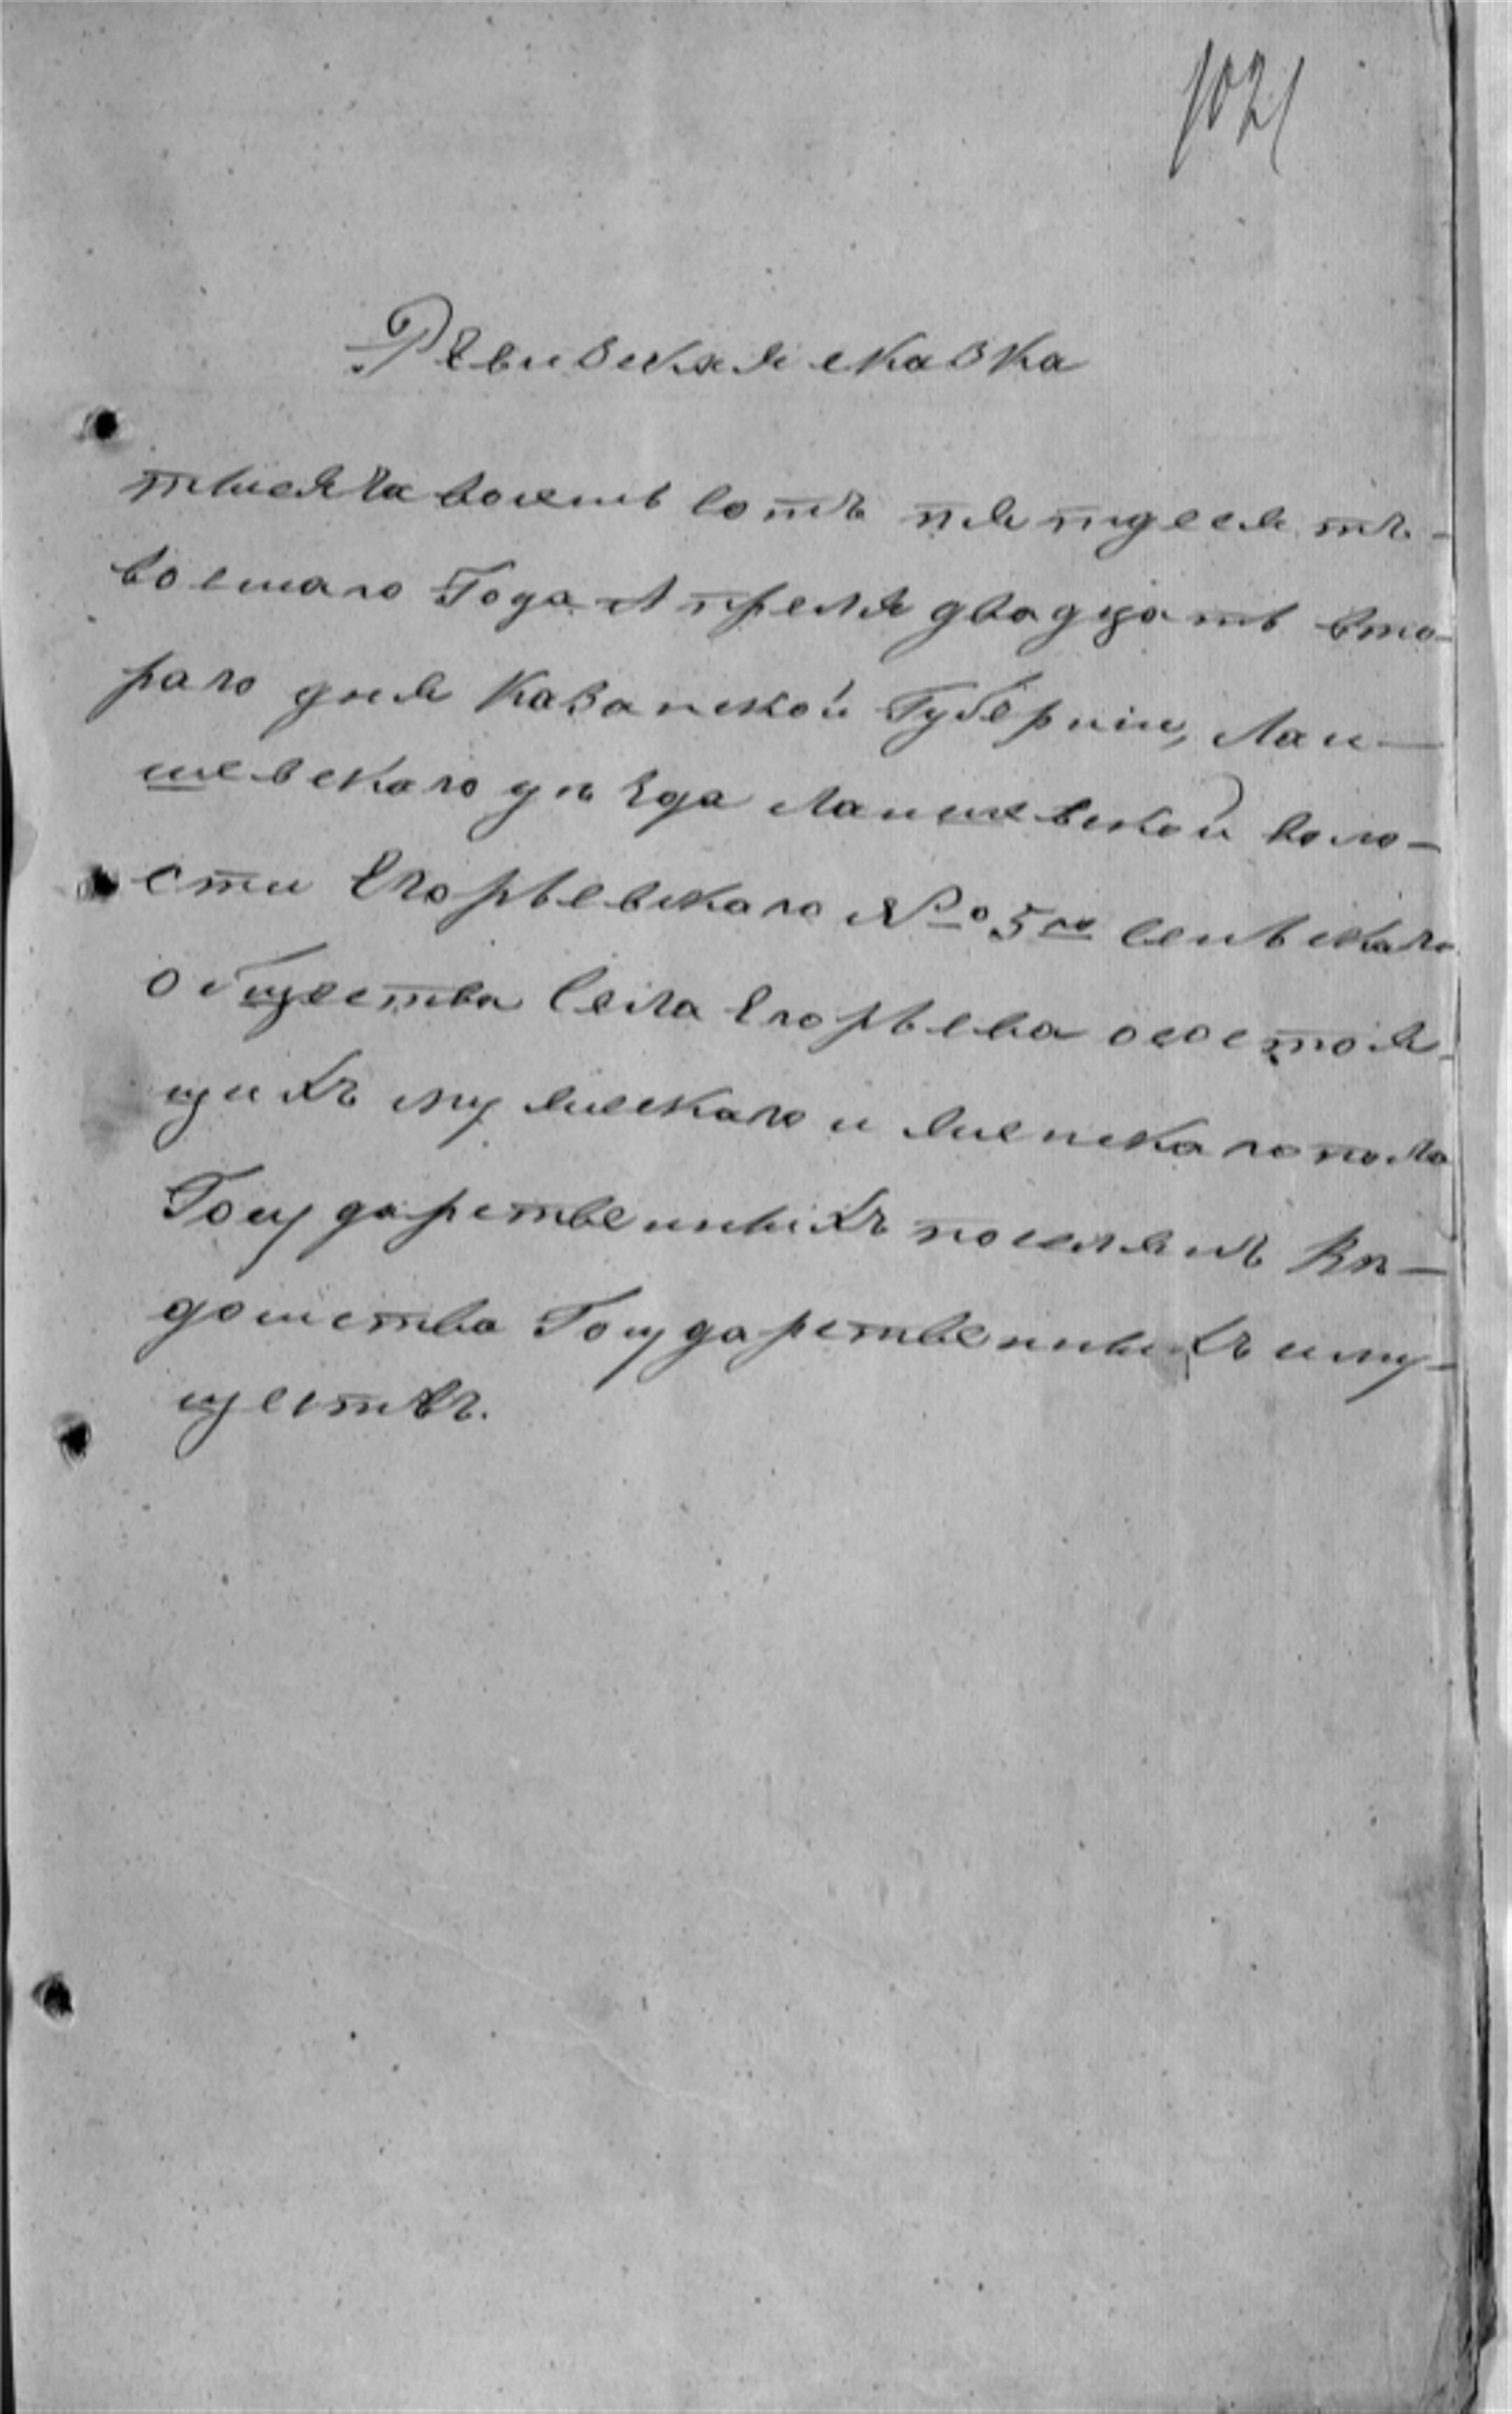 1021
Ревизская сказка
тысяча восемь сотъ пятдесятъ-
восмаго Года Апреля двадцать вто-
раго дня Казанской Губерніи, Лаи-
шевскаго уѣзда Лаишевской воло-
сти Егорьевскаго № 5го сельскаго
общества Села Егорьева о состоя-
щихъ мужескаго и женскаго пола
Государственныхъ поселянъ Вѣ-
домства Государственныхъ иму-
ществъ.